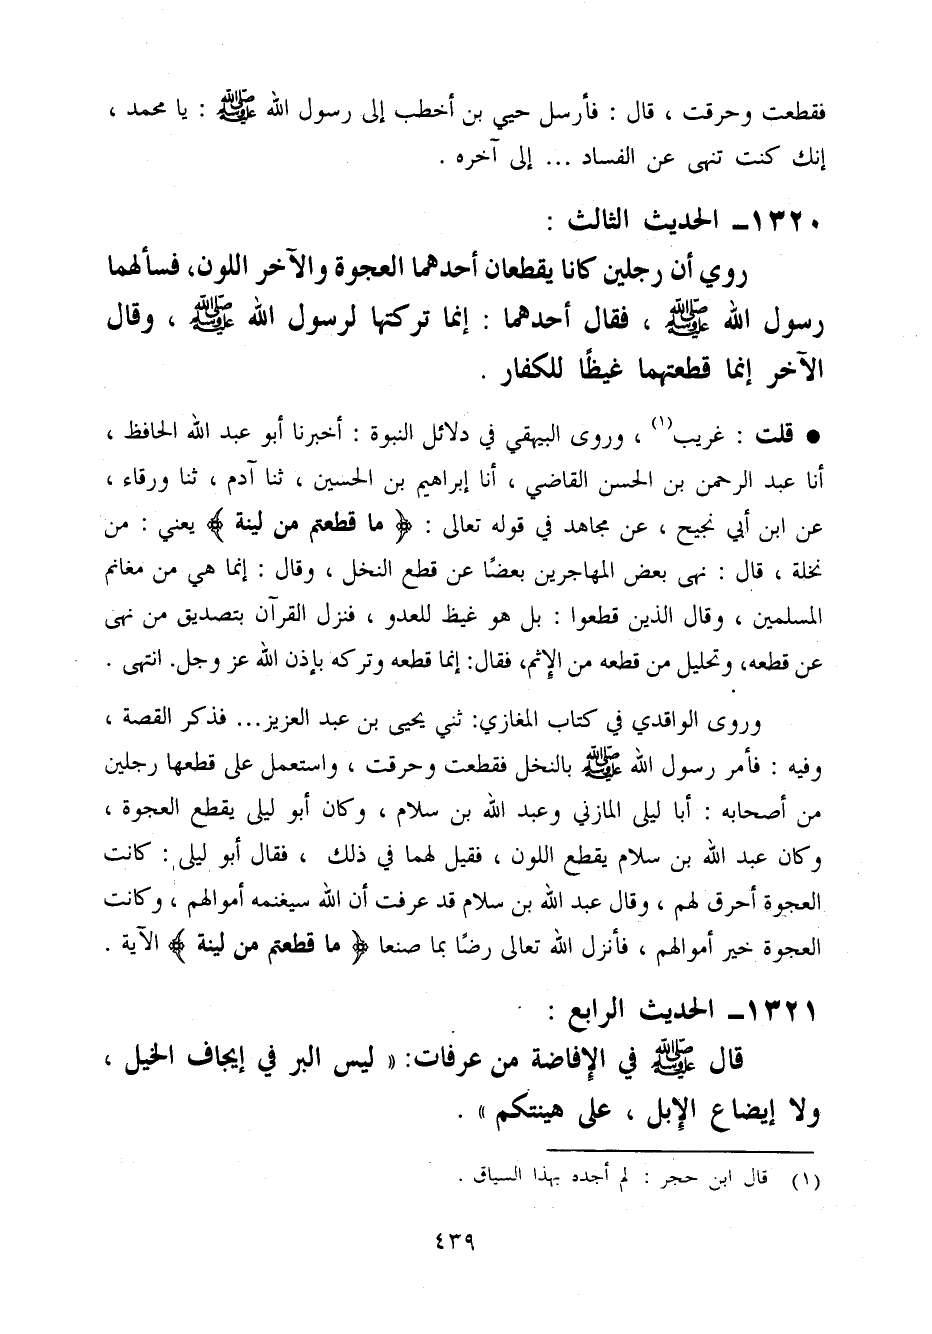 فقطعت وحرقت ، قال : فأرسل حيي بن أخطب إلى رسول الله ﷺ : يا محمد ،
إنك كنت تنهى عن الفساد ... إلى آخره .
١٣٢٠ـ الحديث الثالث :
روي أن رجلين كانا يقطعان أحدهما العجوة والآخر اللون، فسألهما
رسول الله ﷺ ، فقال أحدهما : إنما تركتها لرسول الله ﷺ ، وقال
الآخر إنما قطعتهما غيظًا للكفار .
● قلت : غريب(١) ، وروى البيهقي في دلائل النبوة : أخبرنا أبو عبد الله الحافظ ،
أنا عبد الرحمن بن الحسن القاضي ، أنا إبراهيم بن الحسين ، ثنا آدم ، ثنا ورقاء ،
عن ابن أبي نجيح ، عن مجاهد في قوله تعالى : ﴿ ما قطعتم من لينة ﴾ يعني : من
نخلة ، قال : نهى بعض المهاجرين بعضًا عن قطع النخل ، وقال : إنما هي من مغانم
المسلمين ، وقال الذين قطعوا : بل هو غيظ للعدو ، فنزل القرآن بتصديق من نهى
عن قطعه، وتحليل من قطعه من الإثم، فقال: إنما قطعه وتركه بإذن الله عز وجل. انتهى .
وروى الواقدي في كتاب المغازي: ثني يحيى بن عبد العزيز... فذكر القصة ،
وفيه : فأمر رسول الله ﷺ بالنخل فقطعت وحرقت ، واستعمل على قطعها رجلين
من أصحابه : أبا ليلى المازني وعبد الله بن سلام ، وكان أبو ليلى يقطع العجوة ،
وكان عبد الله بن سلام يقطع اللون ، فقيل لهما في ذلك ، فقال أبو ليلى : كانت
العجوة أحرق لهم ، وقال عبد الله بن سلام قد عرفت أن الله سيغنمه أموالهم ، وكانت
العجوة خير أموالهم ، فأنزل الله تعالى رضًا بما صنعا ﴿ ما قطعتم من لينة ﴾ الآية .
١٣٢١ـ الحديث الرابع :
قال ﷺ في الإفاضة من عرفات: « ليس البر في إيجاف الخيل ،
ولا إيضاع الإبل ، على هينتكم » .
(١) قال ابن حجر : لم أجده بهذا السياق .
٤٣٩